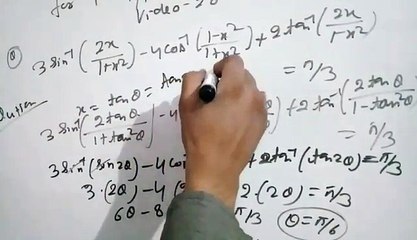 Video-20
3 sin⁻¹(2x/1+x²) - 4cos⁻¹(1-x²/1+x²) + 2tan⁻¹(2x/1-x²)
= π/3
x = tanθ = tan
3 sin⁻¹(2tanθ/1+tan²θ) - 4 + 2 tan⁻¹(2tanθ/1-tan²θ
3 sin⁻¹(sin2θ) - 4 cos⁻¹ + 2tan⁻¹(tan2θ) = π/3
3·(2θ) - 4 2·(2θ) = π/3
6θ - 8 π/3 θ = π/6